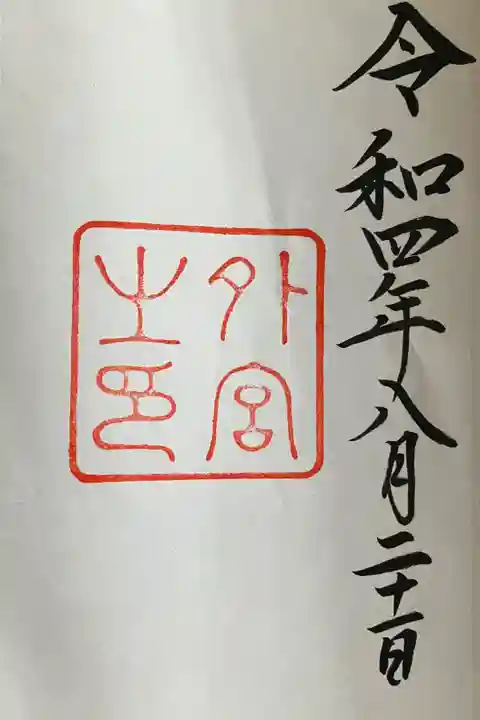 令和四年八月二十一日
外宮
之印